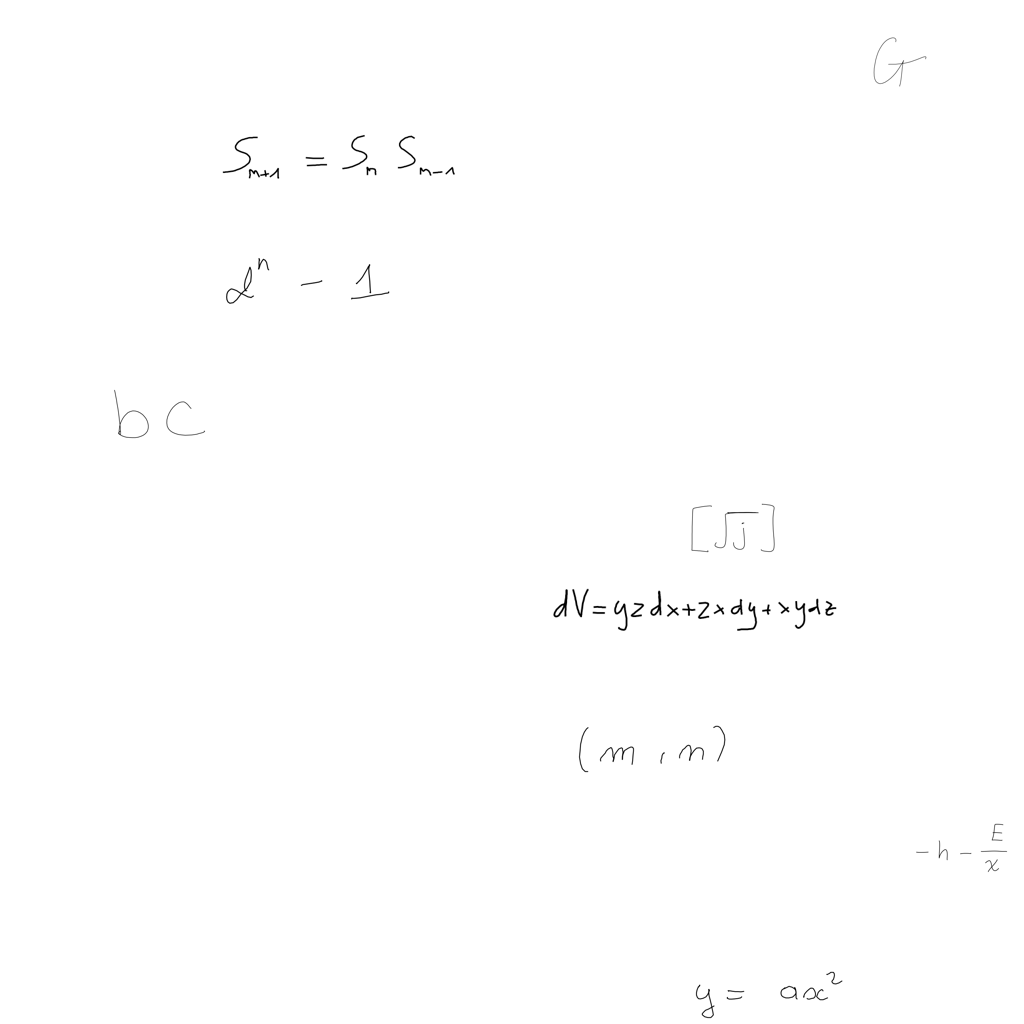 G
S_{n+1} = S_n S_{n-1}
2^n - 1
bc
[√j]
dV=yzdx+zxdy+xydz
(m,n)
-h-\frac{E}{x}
y = ax^2